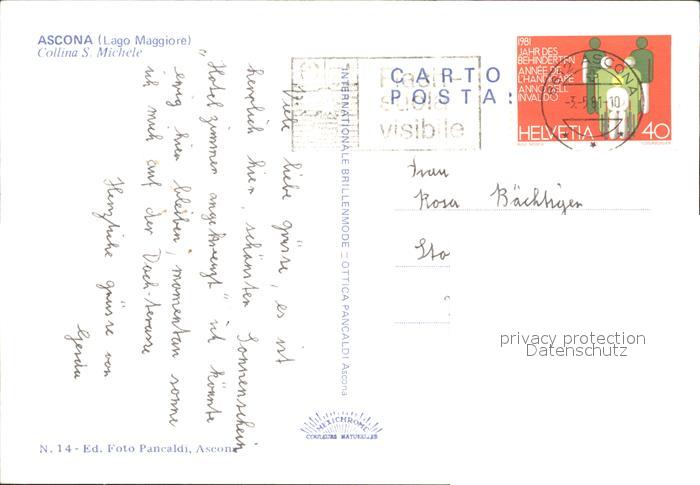 ASCONA (Lago Maggiore)
Collina S. Michele
CARTO
POSTA:
visibile
1981
JAHR DES
BEHINDERTEN
ANNÉE DE
L'HANDICAPÉ
ANNO DELL'
INVALIDO
HELVETIA 40
ASCONA
-3.-5.81-10
Viele liebe grüsse, es ist
herrlich hier, schönsten Sonnenschein
"Hotel zimmer angekreuzt" ich könnte
ewig hier bleiben, momentan sonne
ich mich auf der Dach-terasse
Herzliche grüsse von
Gerda
INTERNATIONALE BRILLENMODE – OTTICA PANCALDI Ascona
Frau
Rosa Bächtiger
Sto
privacy protection
Datenschutz
MEXICHROME
COULEURS NATURELLES
N. 14 - Ed. Foto Pancaldi, Ascona